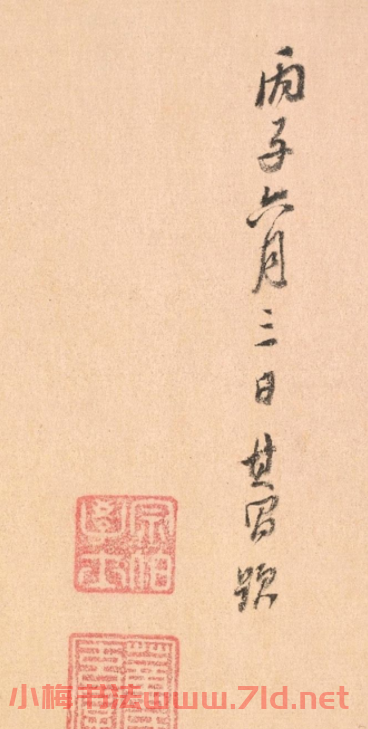 丙子六月三日其昌題
宗伯學士
小梅书法www.7ld.net